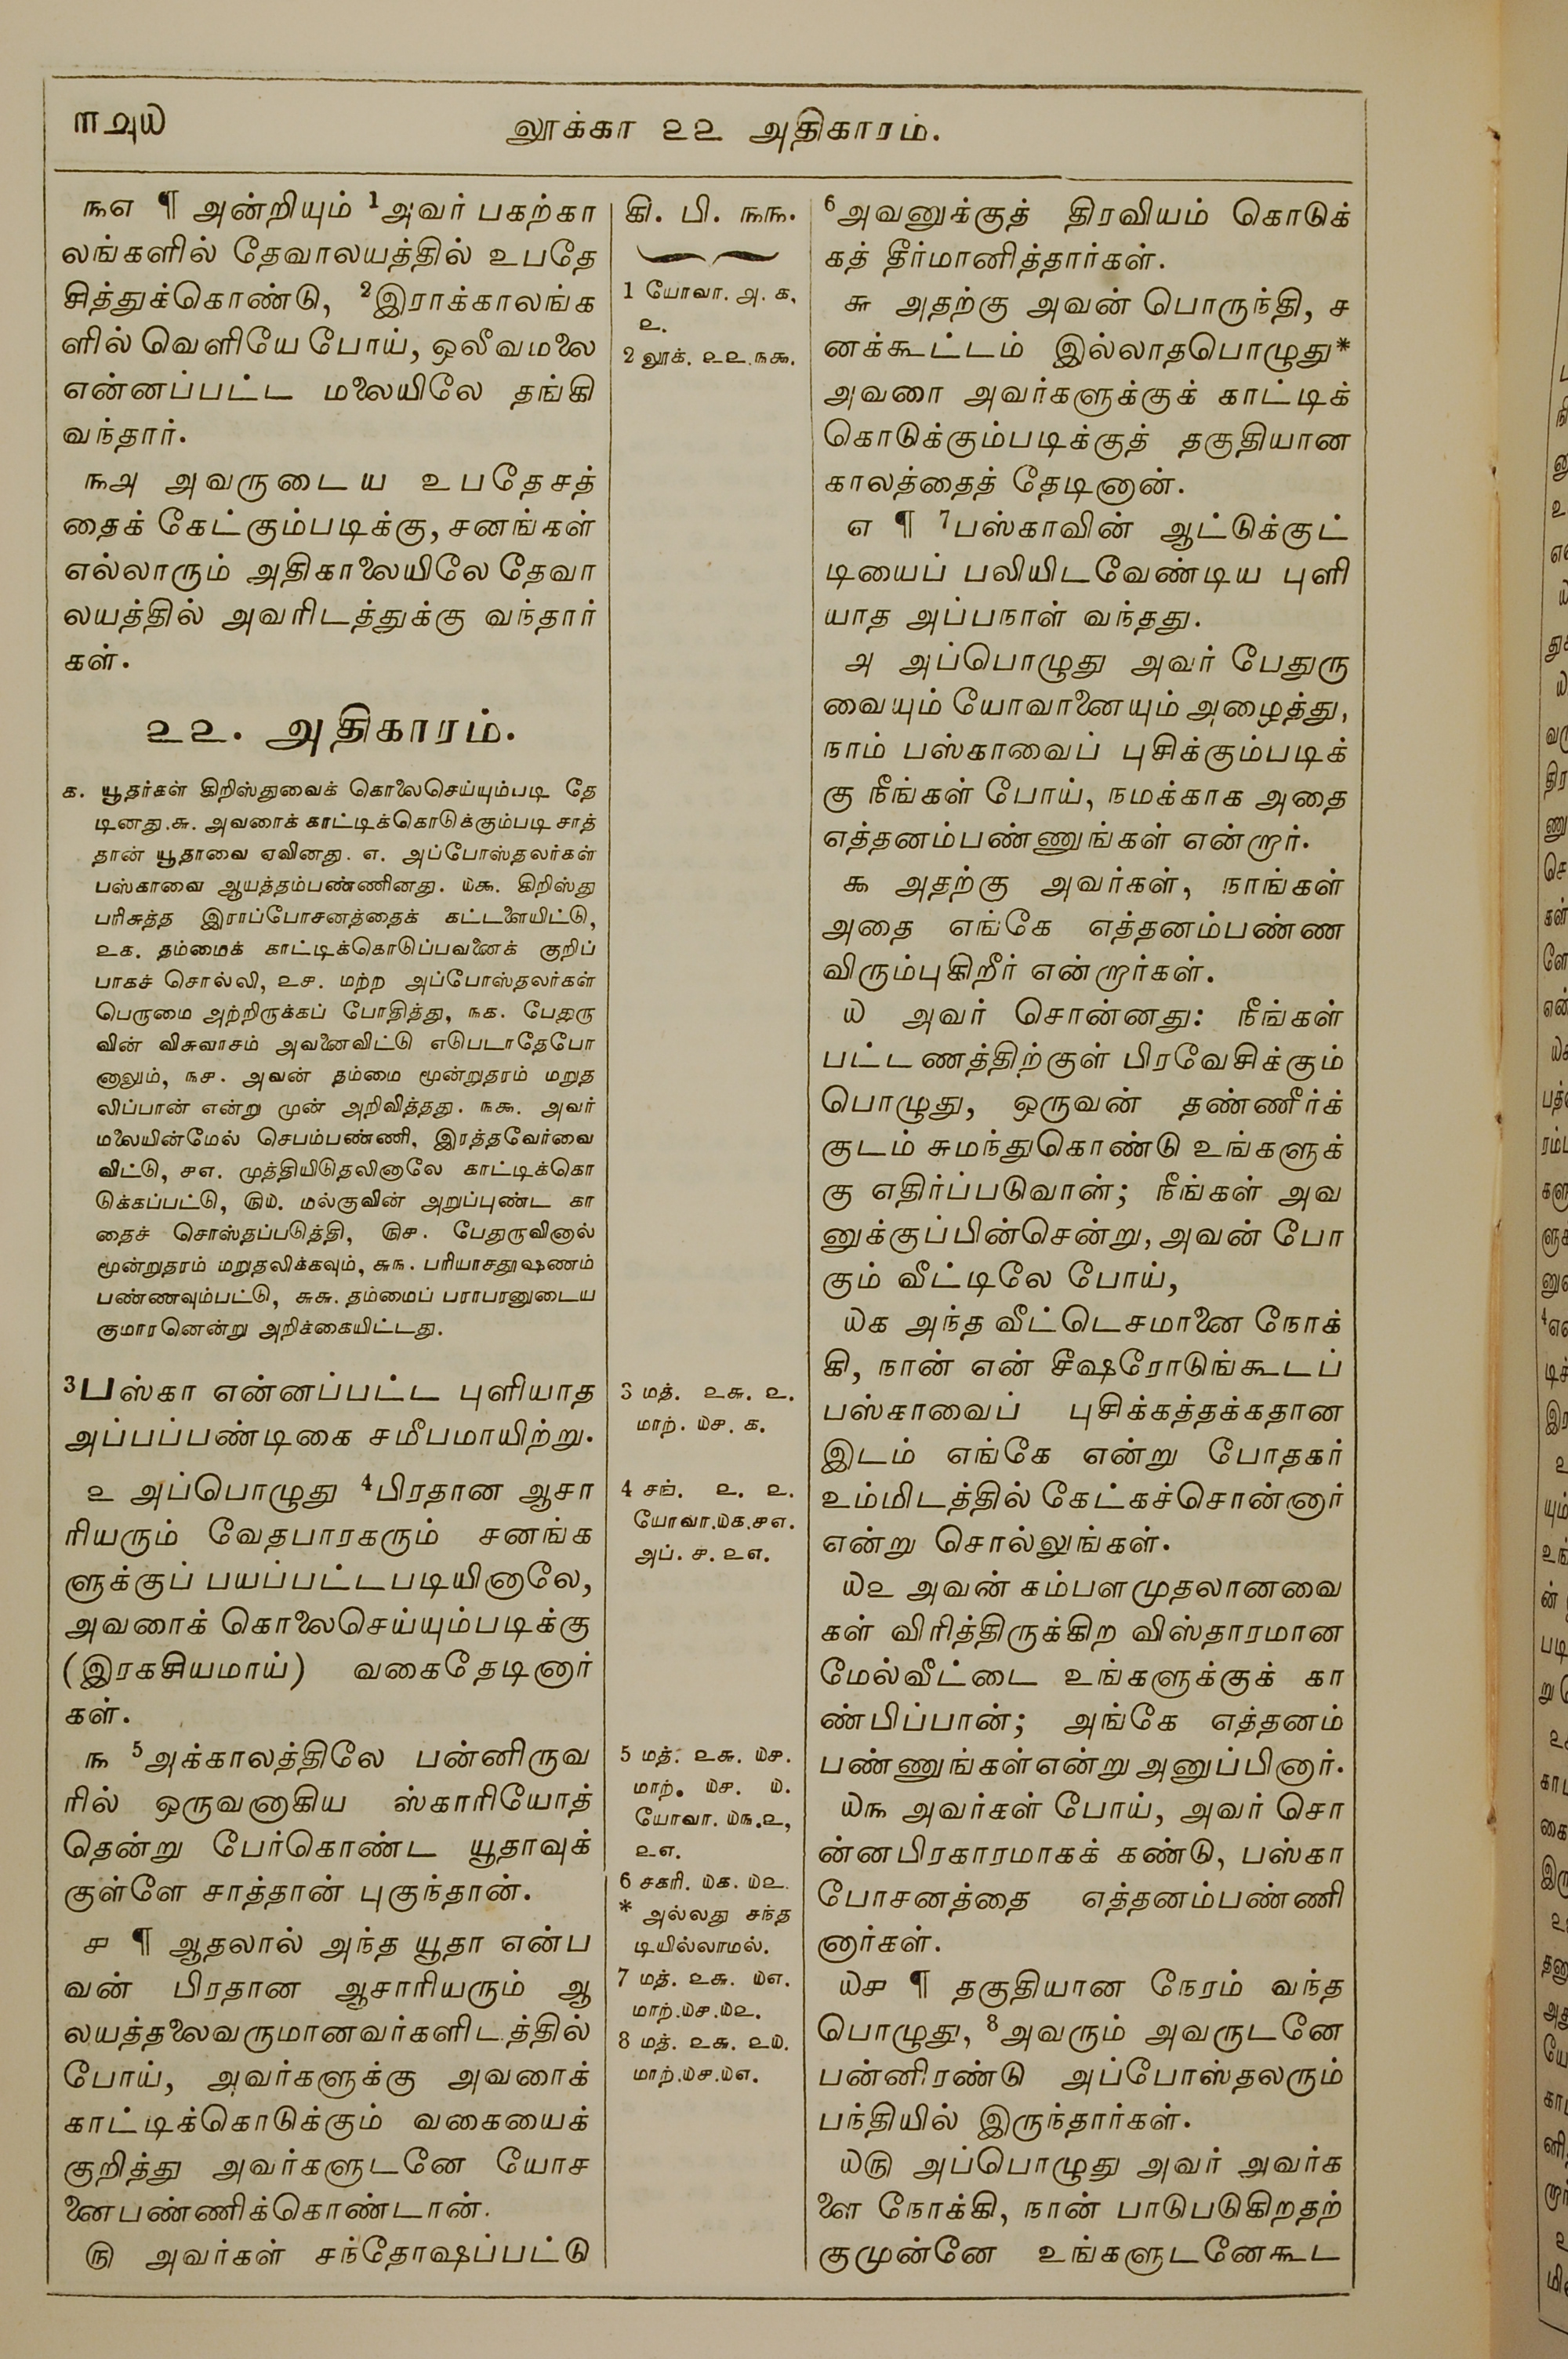 ௱௮௰
லூக்கா ௨௨ அதிகாரம்.
௩௭ ¶ அன்றியும் ¹அவர் பகற்கா
லங்களில் தேவாலயத்தில் உபதே
சித்துக்கொண்டு, ²இராக்காலங்க
ளில் வெளியே போய், ஒலீவமலை
என்னப்பட்ட மலையிலே தங்கி
வந்தார்.
௩௮ அவருடைய உபதேசத்
தைக் கேட்கும்படிக்கு, சனங்கள்
எல்லாரும் அதிகாலையிலே தேவா
லயத்தில் அவரிடத்துக்கு வந்தார்
கள்.
௨௨. அதிகாரம்.
௧. யூதர்கள் கிறிஸ்துவைக் கொலைசெய்யும்படி தே
டினது. ௬. அவரைக் காட்டிக்கொடுக்கும்படி சாத்
தான் யூதாவை ஏவினது. ௭. அப்போஸ்தலர்கள்
பஸ்காவை ஆயத்தம்பண்ணினது. ௰௯. கிறிஸ்து
பரிசுத்த இராப்போசனத்தைக் கட்டளையிட்டு,
௨௧. தம்மைக் காட்டிக்கொடுப்பவனைக் குறிப்
பாகச் சொல்லி, ௨௪. மற்ற அப்போஸ்தலர்கள்
பெருமை அற்றிருக்கப் போதித்து, ௩௧. பேதுரு
வின் விசுவாசம் அவனைவிட்டு எடுபடாதேபோ
னாலும், ௩௪. அவன் தம்மை மூன்றுதரம் மறுத
லிப்பான் என்று முன் அறிவித்தது. ௩௯. அவர்
மலையின்மேல் செபம்பண்ணி, இரத்தவேர்வை
விட்டு, ௪௭. முத்தியிடுதலினாலே காட்டிக்கொ
டுக்கப்பட்டு, ௫௰. மல்குவின் அறுப்புண்ட கா
தைச் சொஸ்தப்படுத்தி, ௫௪. பேதுருவினால்
மூன்றுதரம் மறுதலிக்கவும், ௬௩. பரியாசதூஷணம்
பண்ணவும்பட்டு, ௬௬. தம்மைப் பராபரனுடைய
குமாரனென்று அறிக்கையிட்டது.
³பஸ்கா என்னப்பட்ட புளியாத
அப்பப்பண்டிகை சமீபமாயிற்று.
௨ அப்பொழுது ⁴பிரதான ஆசா
ரியரும் வேதபாரகரும் சனங்க
ளுக்குப் பயப்பட்டபடியினாலே,
அவரைக் கொலைசெய்யும்படிக்கு
(இரகசியமாய்) வகைதேடினார்
கள்.
௩ ⁵அக்காலத்திலே பன்னிருவ
ரில் ஒருவனாகிய ஸ்காரியோத்
தென்று பேர்கொண்ட யூதாவுக்
குள்ளே சாத்தான் புகுந்தான்.
௪ ¶ ஆதலால் அந்த யூதா என்ப
வன் பிரதான ஆசாரியரும் ஆ
லயத்தலைவருமானவர்களிடத்தில்
போய், அவர்களுக்கு அவரைக்
காட்டிக்கொடுக்கும் வகையைக்
குறித்து அவர்களுடனே யோச
னைபண்ணிக்கொண்டான்.
௫ அவர்கள் சந்தோஷப்பட்டு
கி. பி. ௩௩.
1 யோவா. ௮. ௧,
௨.
2 லூக். ௨௨. ௩௯.
3 மத். ௨௬. ௨.
மாற். ௰௪. ௧.
4 சங். ௨. ௨.
யோவா.௰௧.௪௭.
அப். ௪. ௨௭.
5 மத். ௨௬. ௰௪.
மாற். ௰௪. ௰.
யோவா. ௰௩.௨,
௨௭.
6 சகரி. ௰௧. ௰௨.
* அல்லது சந்த
டியில்லாமல்.
7 மத். ௨௬. ௰௭.
மாற்.௰௪.௰௨.
8 மத். ௨௬. ௨௰.
மாற்.௰௪.௰௭.
⁶அவனுக்குத் திரவியம் கொடுக்
கத் தீர்மானித்தார்கள்.
௬ அதற்கு அவன் பொருந்தி, ச
னக்கூட்டம் இல்லாதபொழுது*
அவரை அவர்களுக்குக் காட்டிக்
கொடுக்கும்படிக்குத் தகுதியான
காலத்தைத் தேடினான்.
௭ ¶ ⁷பஸ்காவின் ஆட்டுக்குட்
டியைப் பலியிடவேண்டிய புளி
யாத அப்பநாள் வந்தது.
௮ அப்பொழுது அவர் பேதுரு
வையும் யோவானையும் அழைத்து,
நாம் பஸ்காவைப் புசிக்கும்படிக்
கு நீங்கள் போய், நமக்காக அதை
எத்தனம்பண்ணுங்கள் என்றார்.
௯ அதற்கு அவர்கள், நாங்கள்
அதை எங்கே எத்தனம்பண்ண
விரும்புகிறீர் என்றார்கள்.
௰ அவர் சொன்னது: நீங்கள்
பட்டணத்திற்குள் பிரவேசிக்கும்
பொழுது, ஒருவன் தண்ணீர்க்
குடம் சுமந்துகொண்டு உங்களுக்
கு எதிர்ப்படுவான்; நீங்கள் அவ
னுக்குப்பின்சென்று, அவன் போ
கும் வீட்டிலே போய்,
௰௧ அந்த வீட்டெசமானை நோக்
கி, நான் என் சீஷரோடுங்கூடப்
பஸ்காவைப் புசிக்கத்தக்கதான
இடம் எங்கே என்று போதகர்
உம்மிடத்தில் கேட்கச்சொன்னார்
என்று சொல்லுங்கள்.
௰௨ அவன் கம்பளமுதலானவை
கள் விரித்திருக்கிற விஸ்தாரமான
மேல்வீட்டை உங்களுக்குக் கா
ண்பிப்பான்; அங்கே எத்தனம்
பண்ணுங்கள்என்று அனுப்பினார்.
௰௩ அவர்கள் போய், அவர் சொ
ன்னபிரகாரமாகக் கண்டு, பஸ்கா
போசனத்தை எத்தனம்பண்ணி
னார்கள்.
௰௪ ¶ தகுதியான நேரம் வந்த
பொழுது, ⁸அவரும் அவருடனே
பன்னிரண்டு அப்போஸ்தலரும்
பந்தியில் இருந்தார்கள்.
௰௫ அப்பொழுது அவர் அவர்க
ளை நோக்கி, நான் பாடுபடுகிறதற்
குமுன்னே உங்களுடனேகூட